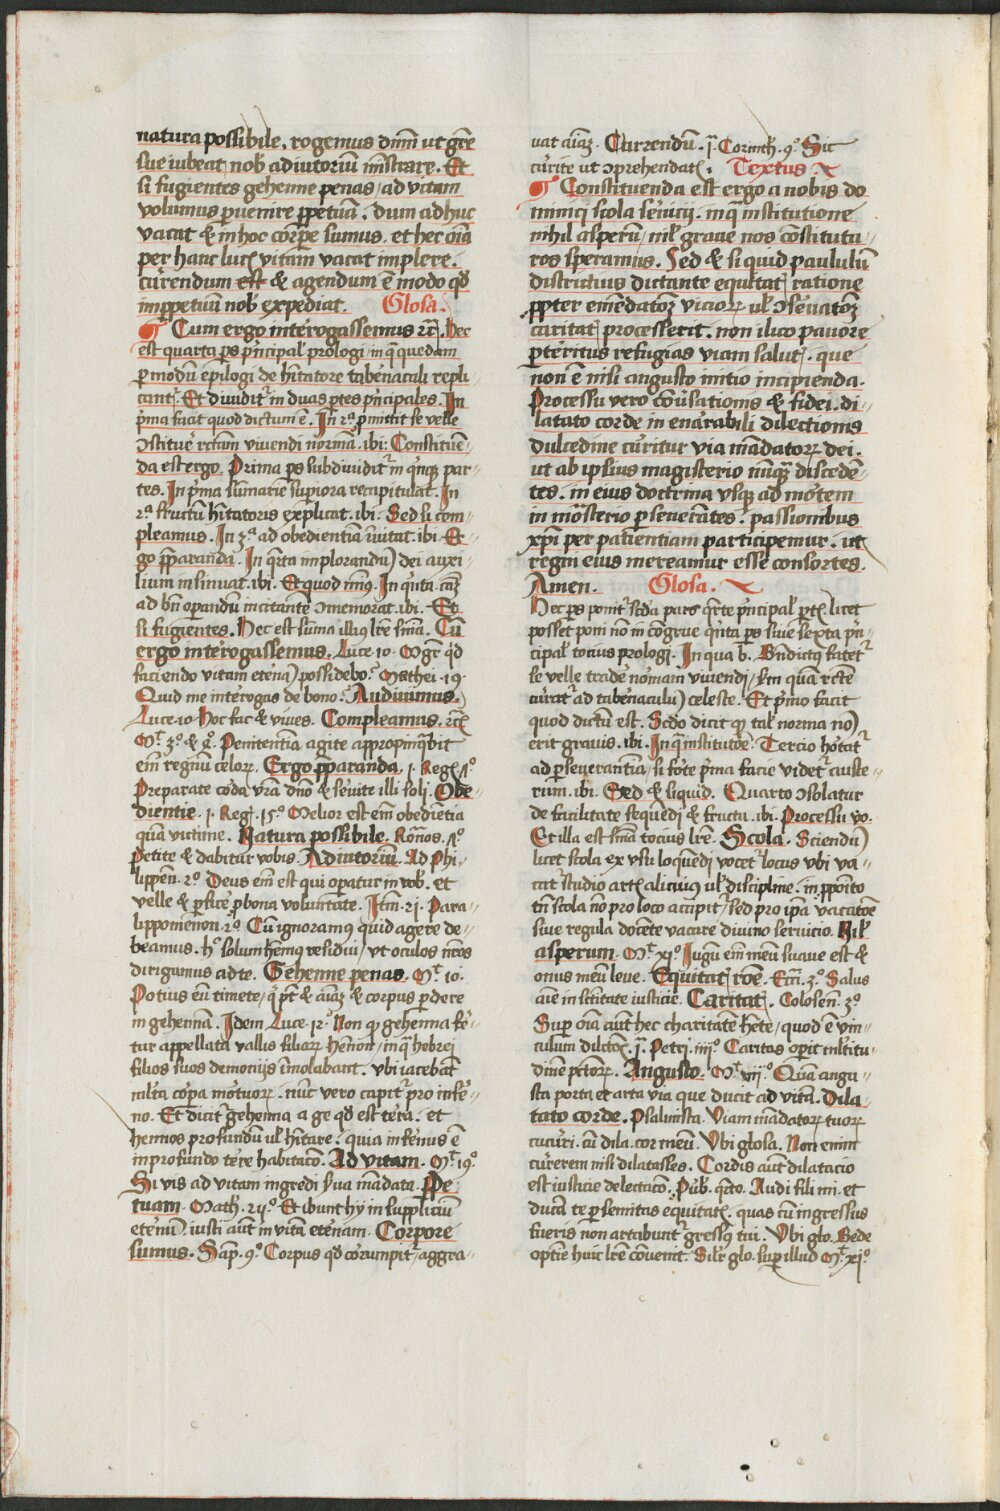 natura possibile . rogemus dn̄m ut gr̄e
sue iubeat nob̄ adiutoriū mīstrare . Et
si fugientes gehenne penas / ad vitam
volumus ꝑuenire ꝑpetuā . dum adhuc
vacat & in hoc corꝑe sumus . et hec oīa
per hanc luc̄ vitam vacat implere .
curendum est & agendum ē modo qd̄
imꝑpetuū nob̄ expediat . Glosa .
¶ Cum ergo interogassemus rc̄ . Hec
est quarta ps p̄ncipal̄ prologi / in q̄ quedam
ꝑ modū epilogi de hītatore tabernaculi repli
cant᷑ . Et diuidit᷑ in duas ptes p̄ncipales . In
p̄ma facit quod dictum ē . In 2ª p̄mittit se velle
ꝯstitue᷑ rctam viuendi normā . ibi . Constituē
da est ergo . Prima ps subdiuidit᷑ in q̄nqꝫ par-
tes . In p̄ma sūmarie supiora recapitulat . In
2ª fructū hītatoris explicat . ibi . Sed si com-
pleamus . In 3ª ad obedientiā īuitat . ibi . Er-
go p̄paranda . In q̄rta implorandū dei auxi-
lium insinuat . ibi . Et quod minꝰ . In q̄nta
ad bn̄ operandū incitantē ꝯmemorat . ibi . Et
si fugientes . Hec est sūma illiꝰ lr̄e . Cū
ergo interogassemus . Luce . 10 . Mgr̄ qd̄
faciendo vitam eternā possidebo . Mathei . 19 .
Quid me interogas de bono . Audiuimus .
Luce . 10 Hoc fac & viues . Compleamus . rc̄
Mt̄ 3º & 4º . Penitentia agite appropinq̄bit
em̄ regnū celoꝝ . Ergo p̄paranda . 1 . Reḡ . 7º
Preparate corda vr̄a dn̄o & seruite illi soli . Obe-
dientie . 1 . Reḡ . 15º Melior est em̄ obedientia
quā victime . Natura possibile . Romōs . 7º
Petite & dabitur vobis . Adiutoriū . Ad Phi-
lippen̄ . 2º Deus em̄ est qui oꝑatur in vob̄ . et
velle & ꝑfice᷑ ꝓ bona voluntate . Itm̄ . 2i . Para-
lippomenon . 2º Cū ignoramꝰ quid agere de-
beamus . hº solum hēmꝰ residui / vt oculos nr̄os
dirigamus ad te . Gehenne penas . Mt̄ 10 .
Potius eū timete / q̄ pt̄ & aīaꝫ & corpus ꝑdere
in gehennā . Idem . Luce . 12º Non qꝫ gehenna fer-
tur appellata vallis filioꝝ hennon / in q̄ hebrei
filios suos demoniijs ī̄molabant . vbi iacebāt
ml̄ta corꝑa mortuoꝝ . nūc vero capit᷑ pro infer-
no . Et dicit᷑ gehenna a ge qd̄ est terra . et
hennos profundū ul̄ hītare . quia infernus ē
in profundo terre habitacō . Ad vitam . Mt̄ 19º
Si vis ad vitam ingredi s̄ua mādata . Ppe-
tuam . Math̄ . 25º . Et ibunt hy in suppliciū
eternū . iusti aūt in vitā eternam . Corpore
sumus . Sap̄ . 9º Corpus qd̄ corumpit᷑ / aggra-
uat aīaꝫ . Currendū . 1ª Corinth̄ . 9º Sic
curite ut ꝯprehendat . Textus .
¶ Constituenda est ergo a nobis do
minici scola seruicij . in q̄ institutione
nihil asperū / nil̄ graue nos cōstitutu-
ros speramus . Sed & si quid paululū
districtius dictante equitat̄ ratione
ꝓpter emēdatōꝫ vicioꝝ ul̄ ꝯseruatōꝫ
caritat̄ processerit . non ilico pauore
ꝑterritus refugias viam salut̄ . que
non ē nisi angusto initio incipienda .
Processu vero cōuersationis & fidei . di-
latato corde inenarrabili dilectionis
dulcedine curitur via mādatoꝝ dei .
ut ab ipsius magisterio nūqꝫ discedē-
tes . in eius doctrina usqꝫ ad mortem
in mōsterio ꝑseuerātes . passionibus
xp̄i per patientiam participemur . ut
regni eius mereamur esse consortes .
Amen . Glosa .
Hec ps ponit᷑ scd̄a pars q̄rte p̄ncipal̄ . licet
posset poni nō incongrue q̄nta ps siue sexta p̄n-
cipal̄ tocius prologi . In qua b . Bn̄dictꝰ fatet᷑
se velle trade᷑ normam viuendi / sm̄ quā rcte
curat᷑ ad tabernaculū celeste . Et p̄mo facit
quod dictū est . Scd̄o dicit qꝫ tal̄ norma nō
erit grauis . ibi . In q̄ institutōe . Tercio hortat᷑
ad ꝑseuerantiā / si forte p̄ma facie videt᷑ auste-
rum . ibi . Sed & siquid . Quarto ꝯsolatur
de facilitate sequendi & fructu . ibi . Processu vo .
Et illa est sn̄ia tocius lr̄e . Scola . Sciendū
licet scola ex vsu loquendi vocet᷑ locus vbi va-
cat᷑ studio artꝭ alicuius ul̄ discipline . in ꝓposito
tn̄ scola nō pro loco accipit᷑ / sed pro ipā vacatōe
siue regula docente vacare diuino seruicio . Nil̄
asperum . Mt̄ . xiº Iugū em̄ meū suaue est &
onus meū leue . Equitat̄ rōe . Ecc̄i . 3º Salus
aīe in sc̄titate iusticie . Caritat̄ . Colosen̄ . 3º
Super oīa aūt hec charitatē hēte / quod ē vin-
culum dilctōis . 1ª . Petri . iiijº Caritas oꝑit ml̄titu-
dinē pctōꝝ . Angusto . Mt̄ . vijº Quā angu-
sta porta et arta via que ducit ad vitā . Dila-
tato corde . Psalmista . Viam mādatoꝝ tuoꝝ
cucurri . cū dila . cor meū . Vbi glosa . Non enim
currerem nisi dilatasses . Cordis aūt dilatacio
est iusticie delectacō . Pūb . q̄rto . Audi fili mi . et
ducā te ꝑ semitas equitat̄ . quas cū ingressus
fueris non artabunt᷑ gressꝰ tui . Vbi glo . Bede
optie huic lr̄e cōuenit . Silr̄ glo . suꝑ illud Mt̄ . xjº